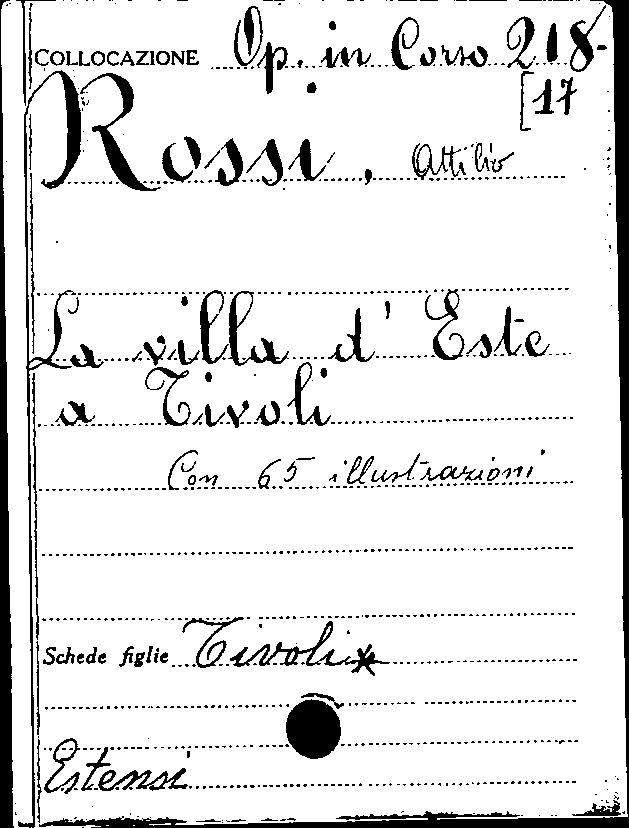 COLLOCAZIONE Op. in Corso 218-
[17
Rossi, Attilio
La villa d'Este
a Tivoli
Con 65 illustrazioni
Schede figlie Tivoli x
Estensi